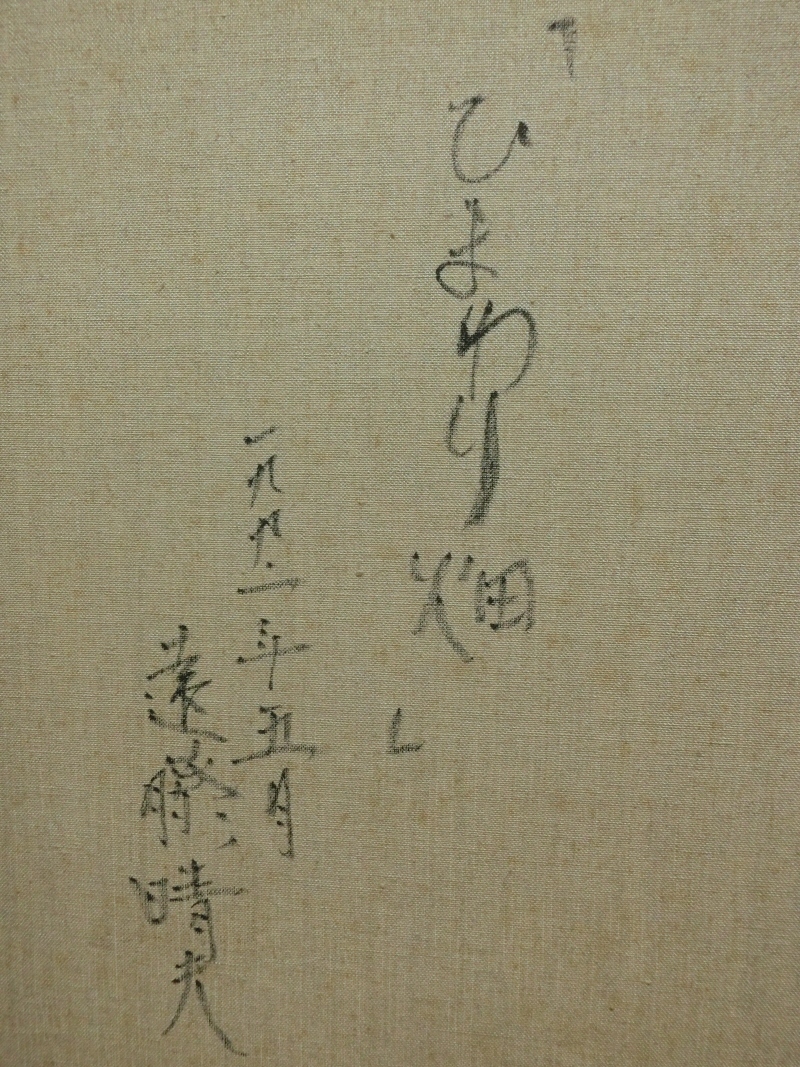 「ひまわり畑」
一九九一年五月
遠藤晴夫